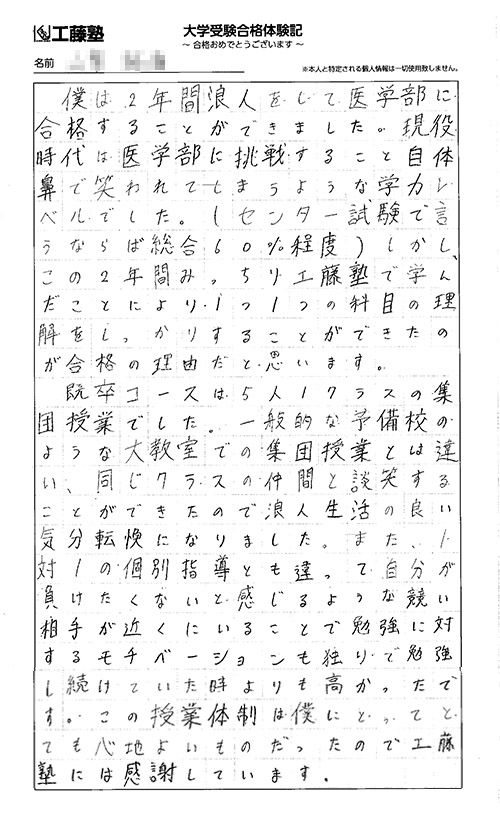 工藤塾
大学受験合格体験記
～ 合格おめでとうございます ～
名前
※本人と特定される個人情報は一切使用致しません。
僕は2年間浪人をして医学部に
合格することができました。現役
時代は医学部に挑戦すること自体
鼻で笑われてしまうような学力レ
ベルでした。(センター試験で言
うならば総合60%程度)しかし、
この2年間みっちり工藤塾で学ん
だことにより、1つ1つの科目の理
解をしっかりすることができたの
が合格の理由だと思います。
既卒コースは5人1クラスの集
団授業でした。一般的な予備校の
ような大教室での集団授業とは違
い、同じクラスの仲間と談笑する
ことができたので浪人生活の良い
気分転換になりました。また、1
対1の個別指導とも違って自分が
負けたくないと感じるような競い
相手が近くにいることで勉強に対
するモチベーションも独りで勉強
し続けていた時よりも高かったで
す。この授業体制は僕にとってと
ても心地よいものだったので工藤
塾には感謝しています。